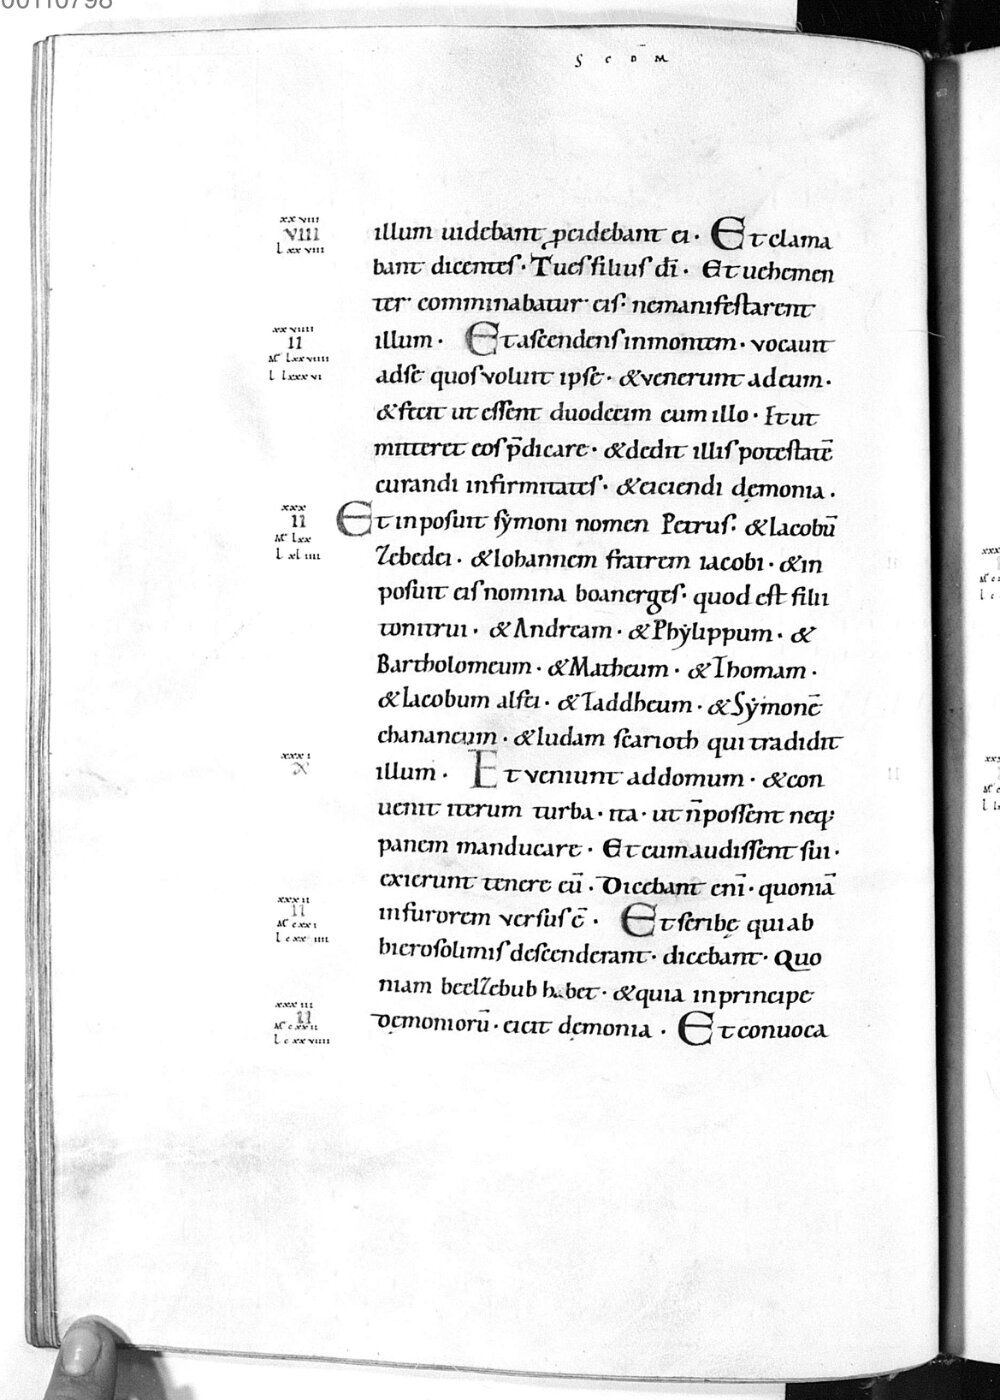 00110798
S C D̄ M
xxviii
viii
L xxviii
illum uidebant ꝓcidebant ei · Et clama
bant dicentes · Tu es filius dī · Et uehemen
ter comminabatur eis · ne manifestarent
xxviiii
ii
Mͭ lxxviiii
L lxxxvi
illum · Et ascendens in montem · vocauit
ad se quos voluit ipse · & venerunt ad eum ·
& fecit ut essent duodecim cum illo · Et ut
mitteret eos p̄dicare · & dedit illis potestatē
curandi infirmitates · & eiciendi dęmonia ·
xxx
ii
Mͭ lxx
L xliiii
Et inposuit sẏmoni nomen Petrus · & Iacobū
Zebedei · & Iohannem fratrem iacobi · & in
posuit eis nomina boanerges · quod est filii
tonitrui · & Andream · & Phẏlippum · &
Bartholomeum · & Matheum · & Thomam ·
& Iacobum alfei · & Taddheum · & Sẏmonē
chananeum · & Iudam scarioth qui tradidit
xxxi
x
illum · Et veniunt ad domum · & con
uenit iterum turba · ita · ut n̄ possent neq;
panem manducare · Et cum audissent sui ·
exierunt tenere eū · Dicebant enī · quoniā
xxxii
ii
Mͭ cxxi
L cxxiiii
in furorem versus ē · Et scribę qui ab
hierosolimis descenderant · dicebant · Quo
niam beelzebub habet · & quia in principe
xxxiii
ii
Mͭ cxxii
L cxxviiii
dęmoniorū · eicit dęmonia · Et conuoca